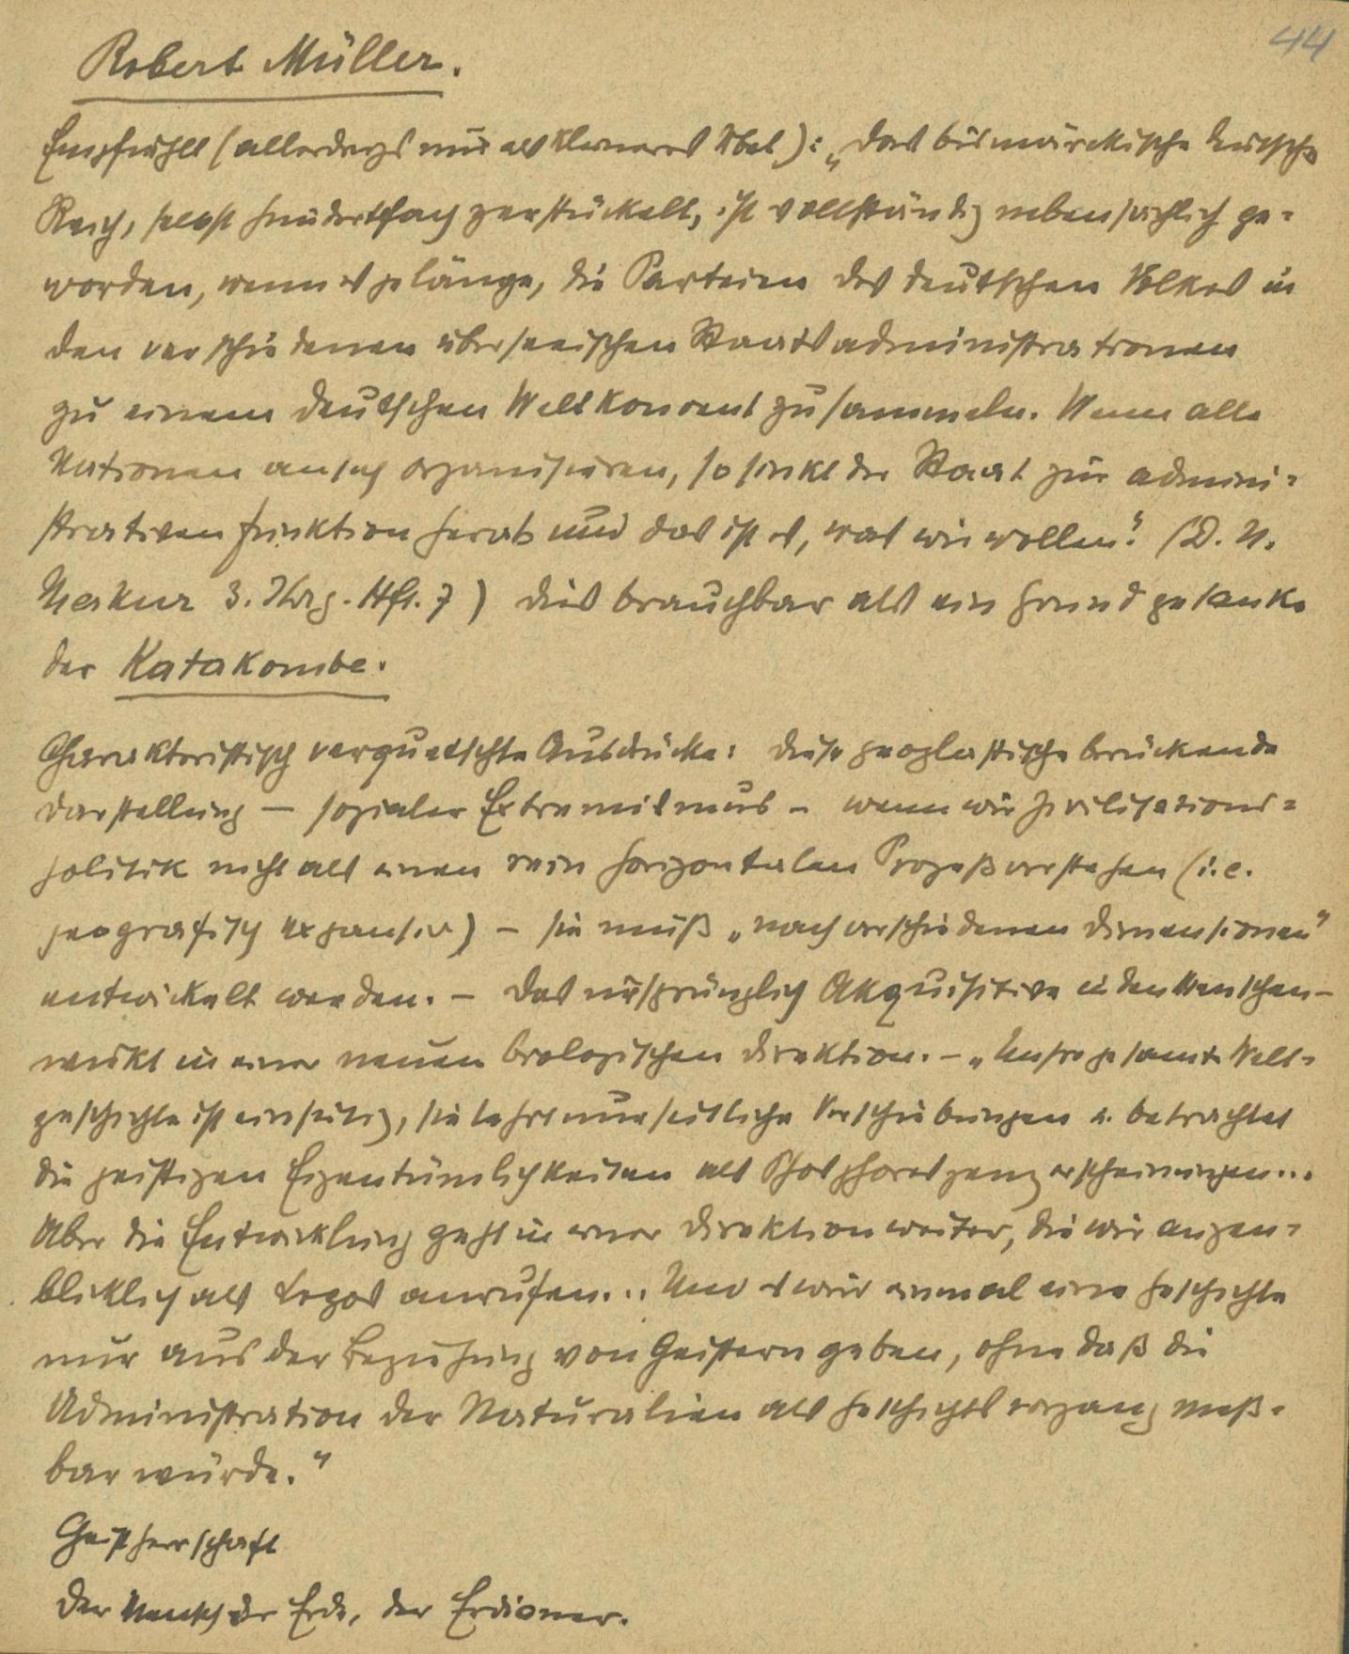 44
Robert Müller.
Empfiehlt (allerdings nur als kleineres Übel): „Das bismarckische deutsche
Reich, selbst hundertfach zerstückelt, ist vollständig nebensächlich ge-
worden, wenn es gelänge, die Parteien des deutschen Volkes in
den verschiedenen überseeischen Staatsadministrationen
zu einem deutschen Weltkonvent zu sammeln. Wenn alle
Nationen an sich organisieren, so sinkt der Staat zur admini-
strativen Funktion herab und das ist es, was wir wollen." (D. N.
Merkur 3. Jhrg. Hft. 7) Dies brauchbar als ein Grundgedanke
der Katakombe.
Charakteristisch verquetschte Ausdrücke: Diese geoplastische berückende
Darstellung — sozialer Extremismus – wenn wir Zivilisations-
politik nicht als einen rein horizontalen Prozeß verstehen (i.e.
geografisch expansiv) – sie muß „nach verschiedenen Dimensionen"
entwickelt werden. – Das ursprünglich Akquisitive in den Menschen –
wirkt in einer neuen biologischen Direktion. – „Unsre gesamte Welt-
geschichte ist einseitig, sie lehrt nur seitliche Verschiebungen u. betrachtet
die geistigen Eigentümlichkeiten als Phosphoreszenzerscheinungen...
Aber die Entwicklung geht in einer Direktion weiter, die wir augen-
blicklich als Logos anrufen... Und es wird einmal eine Geschichte
nur aus der Beziehung von Geistern geben, ohne daß die
Administration der Naturalien als Geschichtsvorgang meß-
bar würde."
Geistherrschaft
Der Mensch der Erde, der Erdioner.